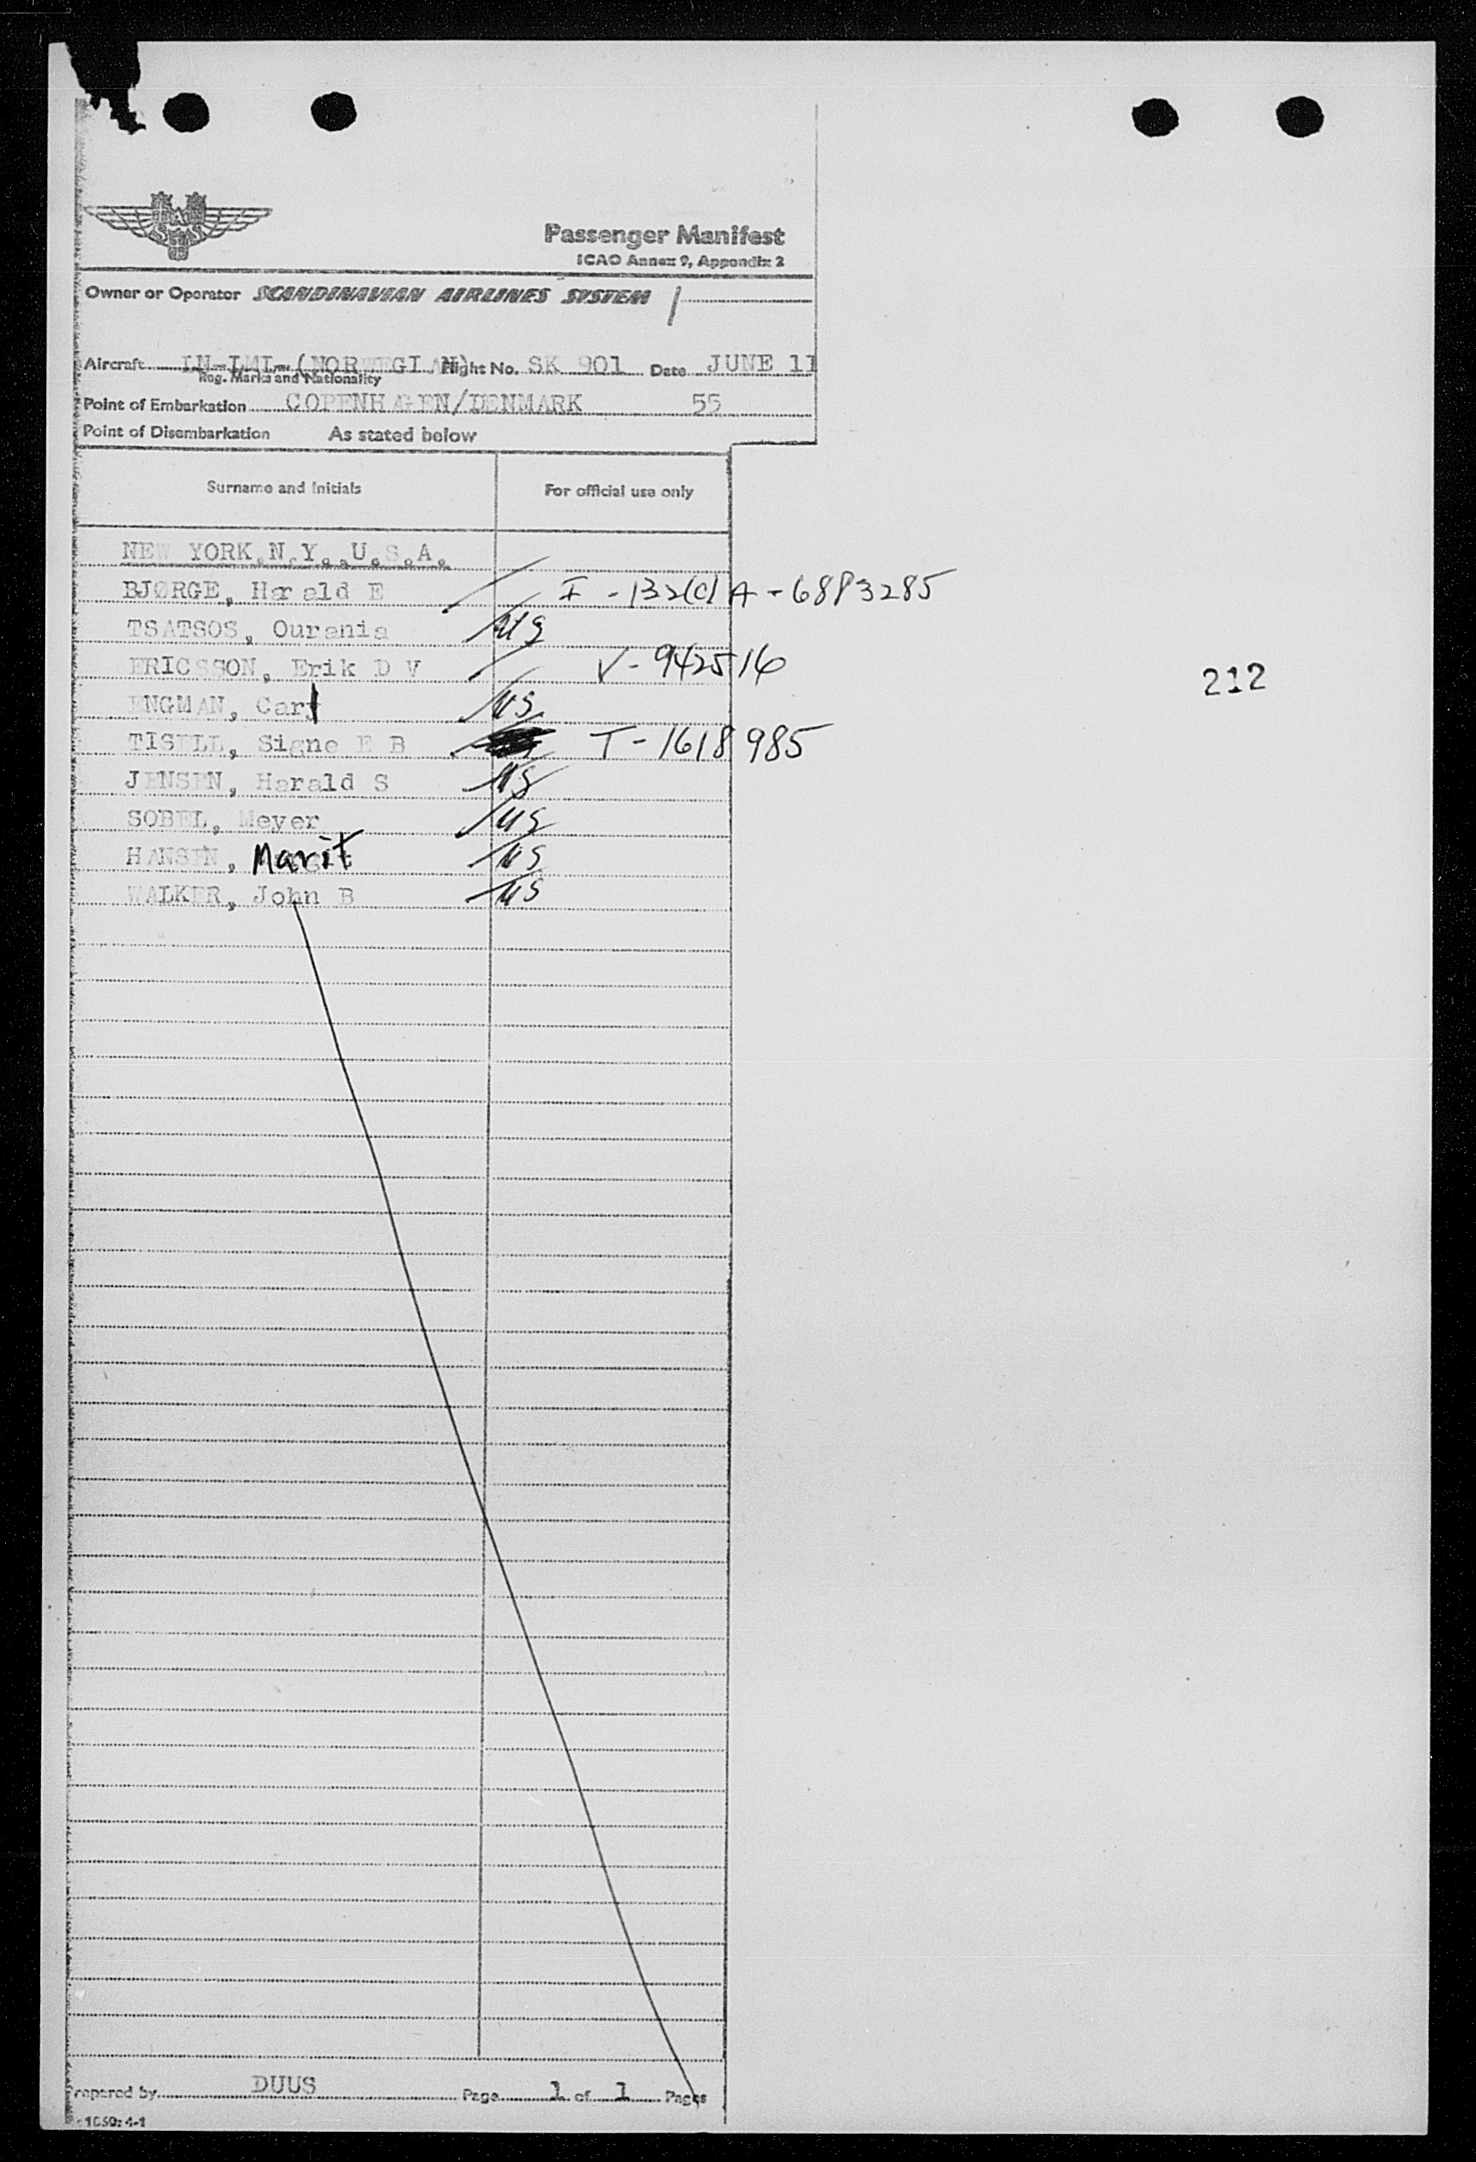 SAS
Passenger Manifest
ICAO Annex 9, Appendix 2
Owner or Operator SCANDINAVIAN AIRLINES SYSTEM
Aircraft LN-LML-(NORWEGIAN) Flight No. SK 901 Date JUNE 11
Reg. Marks and Nationality
Point of Embarkation COPENHAGEN/DENMARK 55
Point of Disembarkation As stated below
Surname and Initials For official use only
NEW YORK,N.Y.,U.S.A.
BJØRGE, Harald E I - 132(c) A - 6883285
TSATSOS, Ourania US
ERICSSON, Erik D V V - 942516
212
ENGMAN, Carl US
TISELL, Signe E B T - 1618985
JENSEN, Harald S US
SOBEL, Meyer US
HANSEN, Marit US
WALKER, John B US
Prepared by DUUS Page 1 of 1 Pages